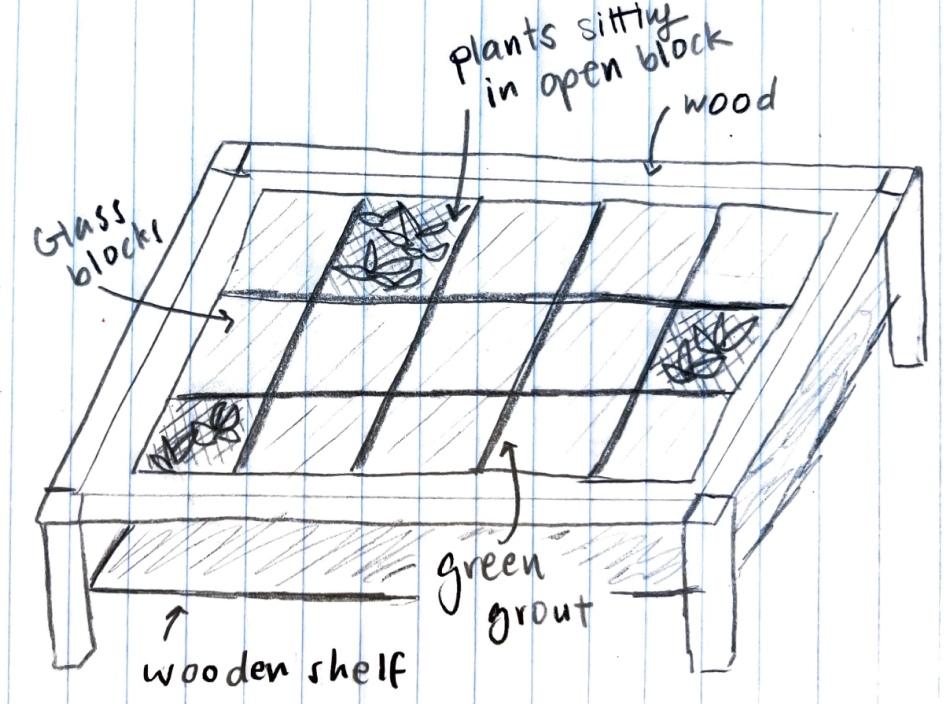 plants sitting
in open block
wood
Glass
blocks
green
grout
wooden shelf